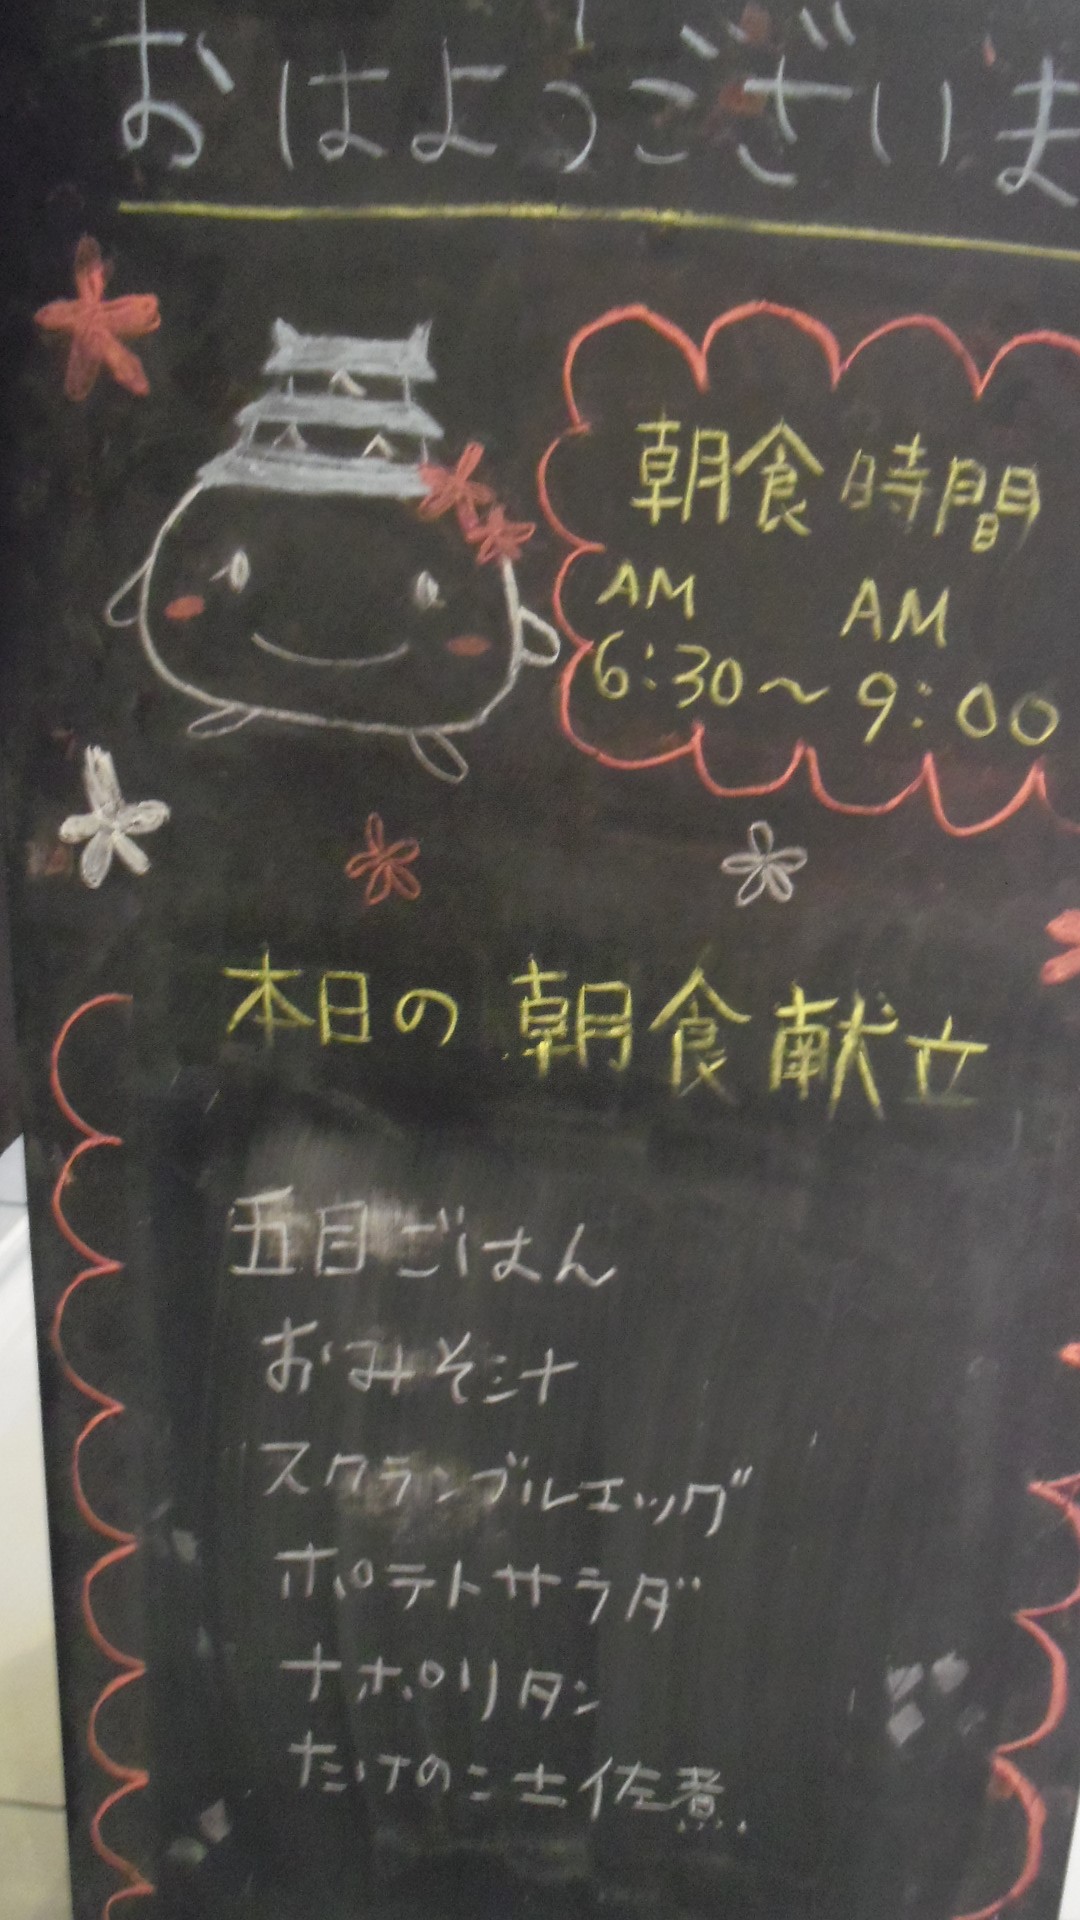 おはようございま
朝食時間
AM AM
6:30～9:00
本日の朝食献立
五目ごはん
おみそ汁
スクランブルエッグ
ポテトサラダ
ナポリタン
たけのこ土佐煮